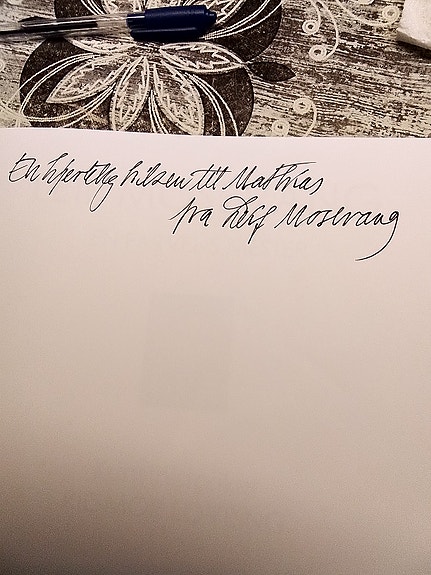 En hjertelig hilsen til Mathias
fra Leif Mosevang